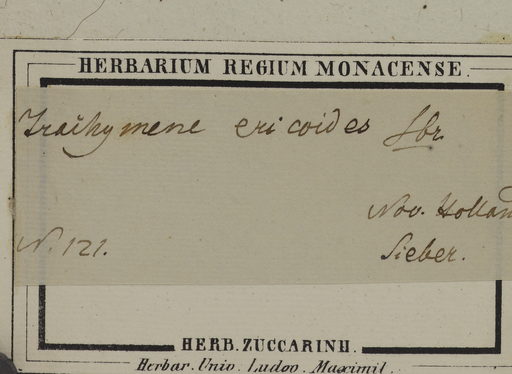 HERBARIUM REGIUM MONACENSE.
Trachymene ericoides Sbr.
Nov. Hollan
N. 121.
Sieber.
HERB. ZUCCARINII.
Herbar. Univ. Ludov. Maximil.